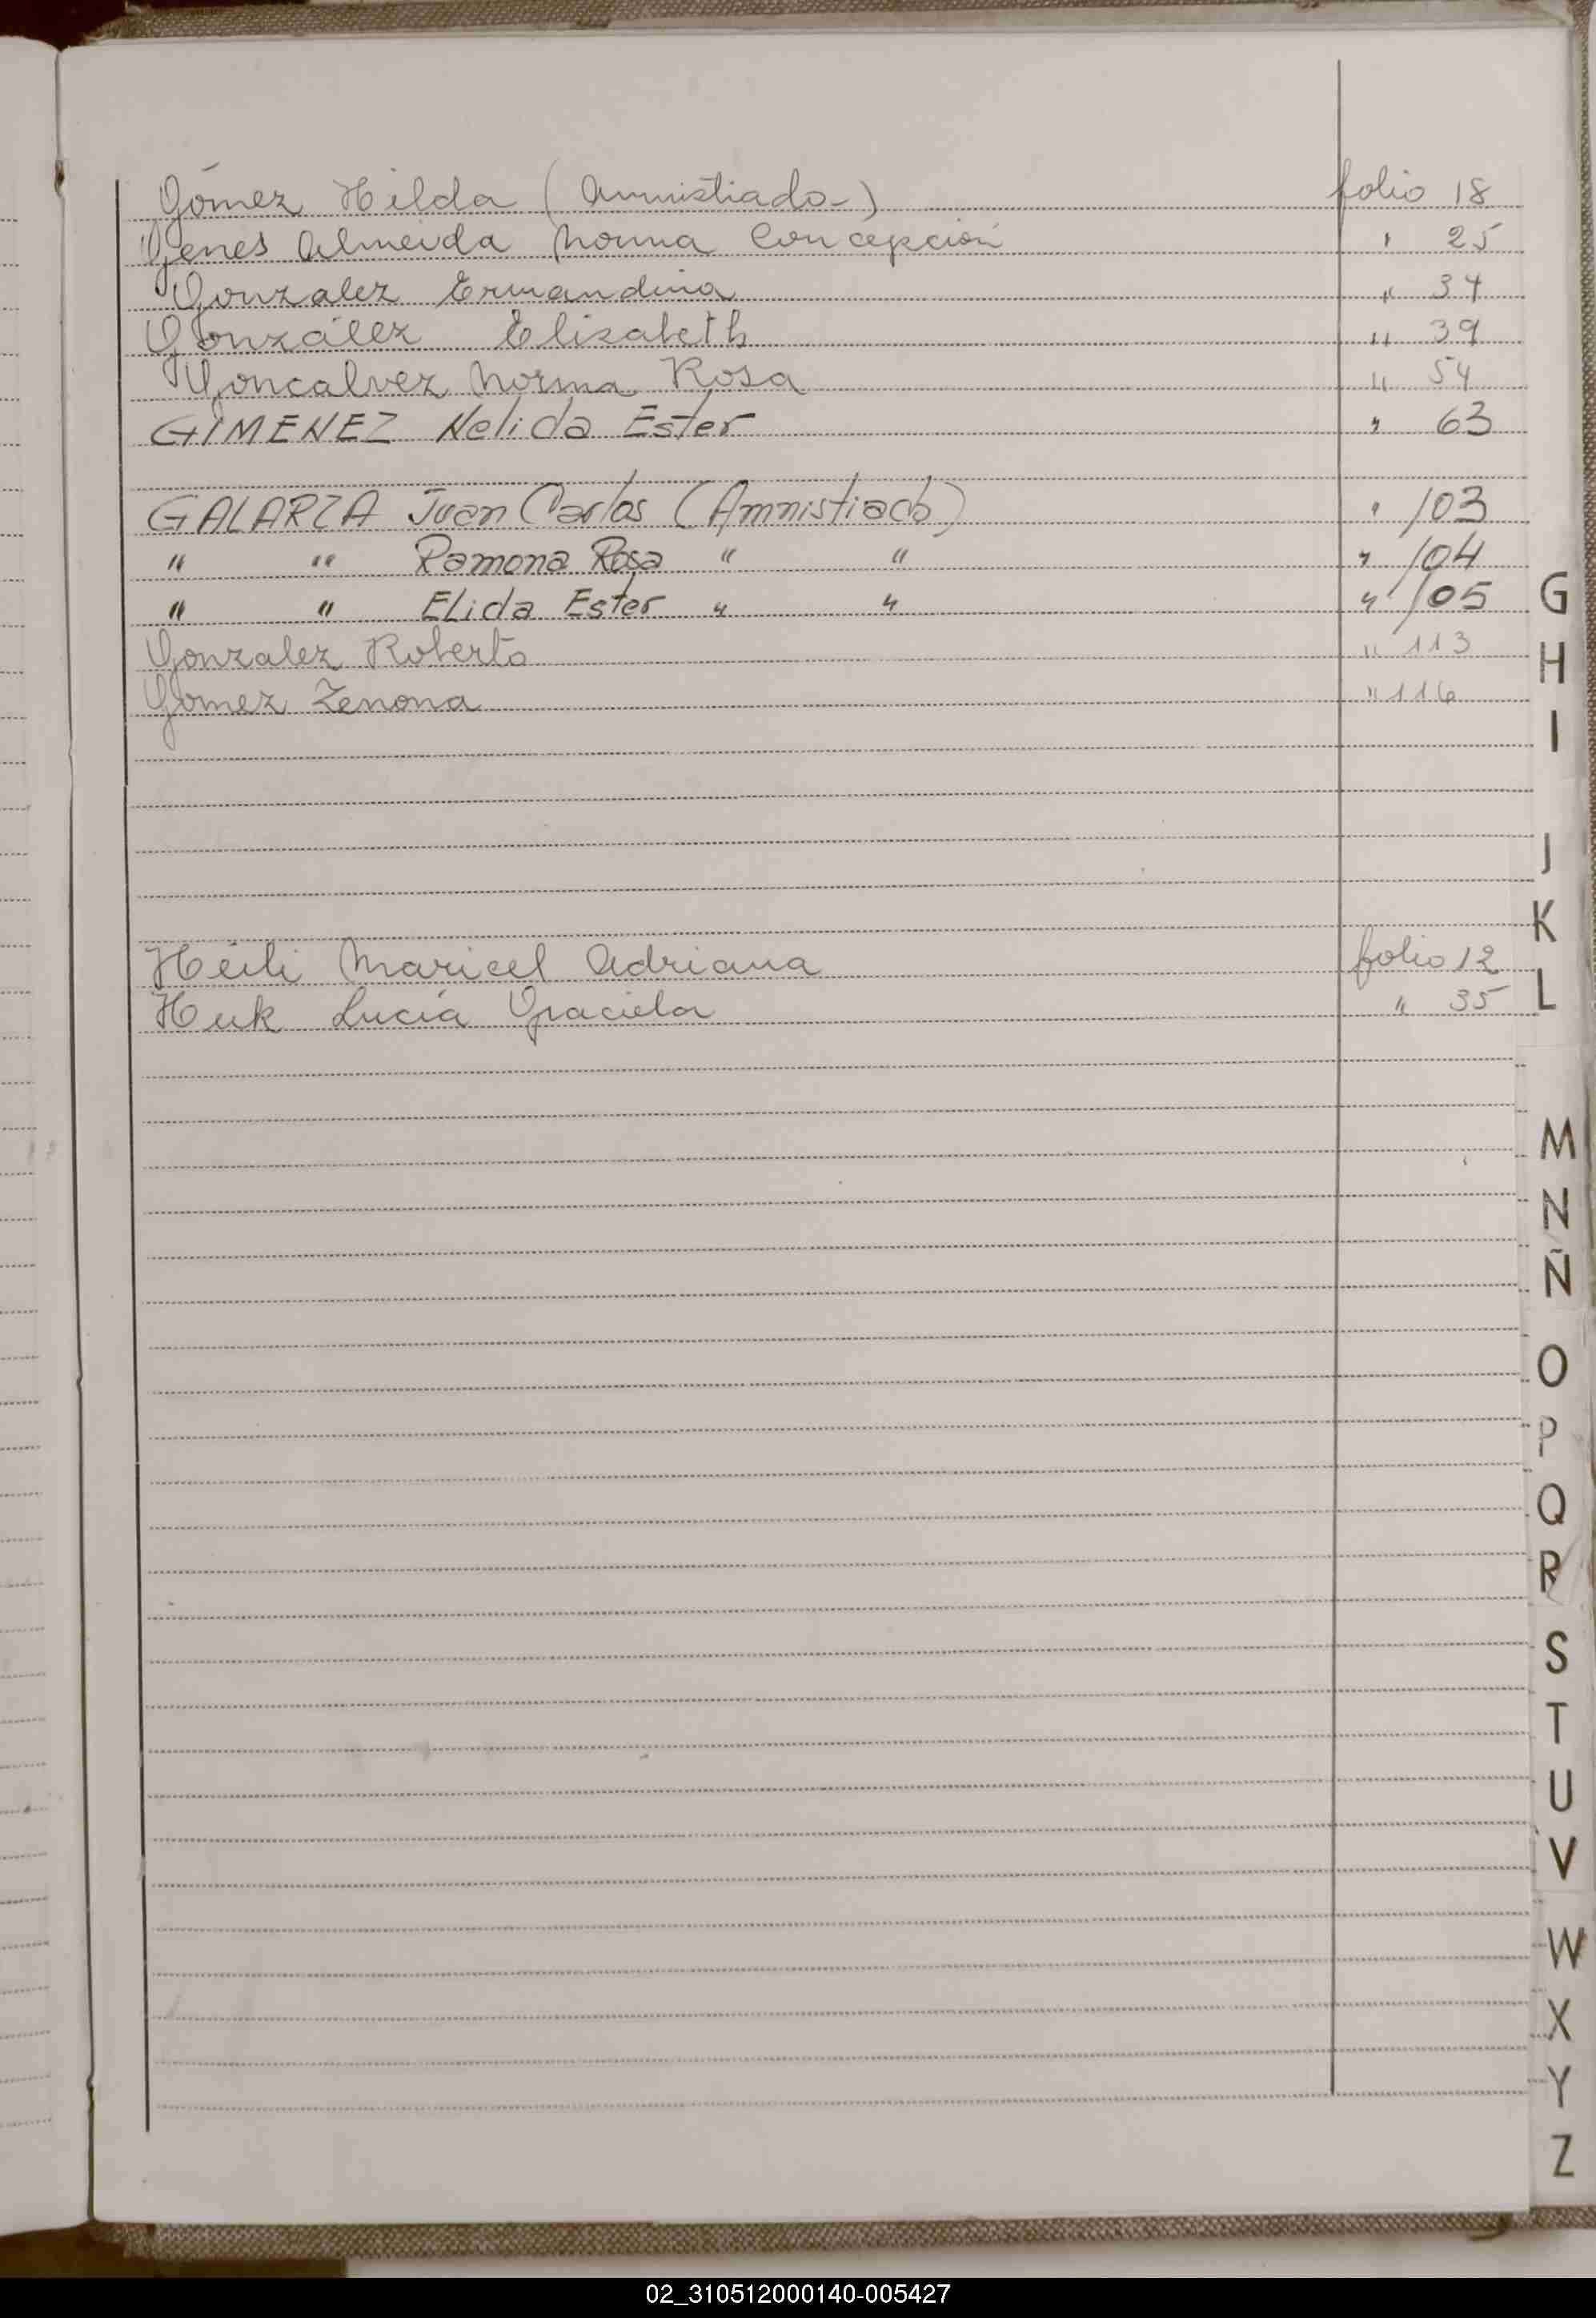 Gómez Hilda (Amnistiado-) folio 18
Genes Almeida Norma Concepción " 25
Gonzalez Ermandina " 34
González Elizabeth " 39
Goncalvez Norma Rosa " 54
GIMENEZ Nelida Ester " 63
GALARZA Juan Carlos (Amnistiado) " 103
" " Ramona Rosa " " " 104
" " Elida Ester " " " 105
Gonzalez Roberto " 113
Gomez Zenona " 116
Heili Maricel Adriana folio 12
Huk Lucía Graciela " 35
G
H
I
J
K
L
M
N
Ñ
O
P
Q
R
S
T
U
V
W
X
Y
Z
02_310512000140-005427